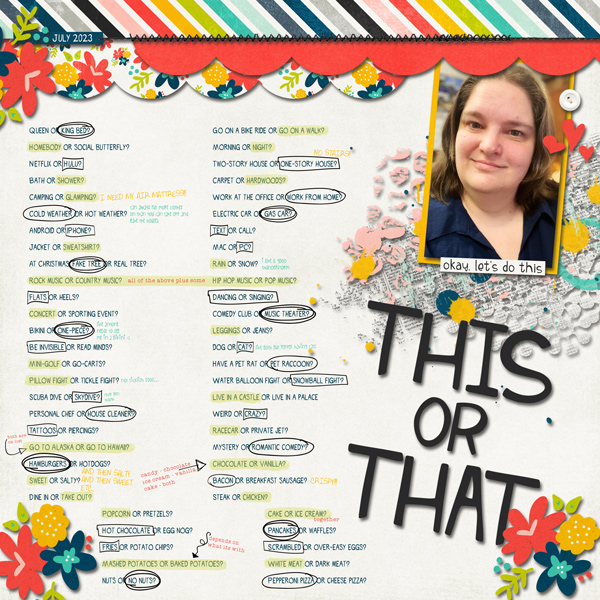 JULY 2023
QUEEN OR KING BED?
HOMEBODY OR SOCIAL BUTTERFLY?
NETFLIX OR HULU?
BATH OR SHOWER?
CAMPING OR GLAMPING? I NEED AN AIR MATTRESS!
COLD WEATHER OR HOT WEATHER?
ANDROID OR IPHONE?
JACKET OR SWEATSHIRT?
AT CHRISTMAS FAKE TREE OR REAL TREE?
ROCK MUSIC OR COUNTRY MUSIC? all of the above plus some
FLATS OR HEELS?
CONCERT OR SPORTING EVENT?
BIKINI OR ONE-PIECE?
BE INVISIBLE OR READ MINDS?
MINI-GOLF OR GO-CARTS?
PILLOW FIGHT OR TICKLE FIGHT?
SCUBA DIVE OR SKYDIVE?
PERSONAL CHEF OR HOUSE CLEANER?
TATTOOS OR PIERCINGS?
both are
GO TO ALASKA OR GO TO HAWAII?
HAMBURGERS OR HOTDOGS?
SWEET OR SALTY? AND THEN SALTY
AND THEN SWEET
DINE IN OR TAKE OUT?
candy - chocolate
ice cream - vanilla
cake - both
POPCORN OR PRETZELS?
HOT CHOCOLATE OR EGG NOG?
FRIES OR POTATO CHIPS?
MASHED POTATOES OR BAKED POTATOES?
depends on
what its with
NUTS OR NO NUTS?
GO ON A BIKE RIDE OR GO ON A WALK?
MORNING OR NIGHT?
NO STAIRS!
TWO-STORY HOUSE OR ONE-STORY HOUSE?
CARPET OR HARDWOODS?
WORK AT THE OFFICE OR WORK FROM HOME?
ELECTRIC CAR OR GAS CAR?
TEXT OR CALL?
MAC OR PC?
RAIN OR SNOW?
HIP HOP MUSIC OR POP MUSIC?
DANCING OR SINGING?
COMEDY CLUB OR MUSIC THEATER?
LEGGINGS OR JEANS?
DOG OR CAT?
HAVE A PET RAT OR PET RACCOON?
WATER BALLOON FIGHT OR SNOWBALL FIGHT?
LIVE IN A CASTLE OR LIVE IN A PALACE
WEIRD OR CRAZY?
RACECAR OR PRIVATE JET?
MYSTERY OR ROMANTIC COMEDY?
CHOCOLATE OR VANILLA?
BACON OR BREAKFAST SAUSAGE? CRISPY!!!
STEAK OR CHICKEN?
CAKE OR ICE CREAM?
together
PANCAKES OR WAFFLES?
SCRAMBLED OR OVER-EASY EGGS?
WHITE MEAT OR DARK MEAT?
PEPPERONI PIZZA OR CHEESE PIZZA?
okay, let's do this
THIS
OR
THAT